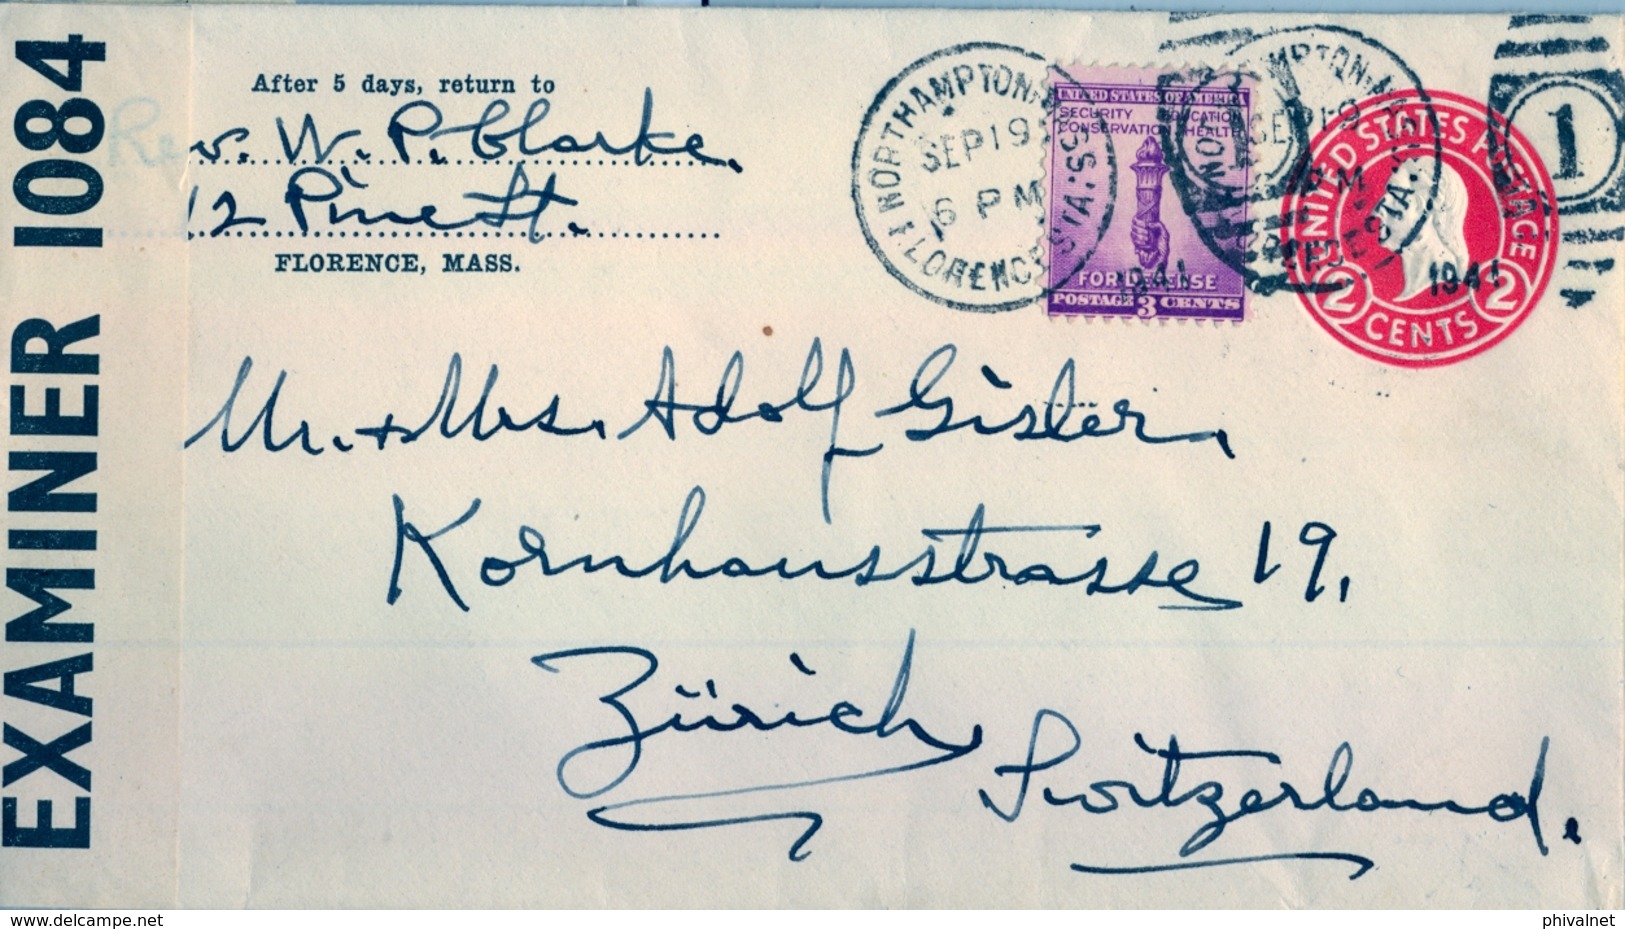 EXAMINER 1084
After 5 days, return to
Rev. W. P. Clarke.
12 Pine St.
FLORENCE, MASS.
NORTHAMPTON, MASS.
SEP 19
6 PM
FLORENCE STA.
1941
UNITED STATES OF AMERICA
SECURITY EDUCATION
CONSERVATION HEALTH
FOR DEFENSE
POSTAGE 3 CENTS
NORTHAMPTON, MASS.
SEP 19
6 PM
FLORENCE STA.
1941
1
UNITED STATES POSTAGE
2 CENTS 2
Mr. + Mrs. Adolf Gisler,
Kornhausstrasse 19,
Zürich,
Switzerland.
www.delcampe.net
phivalnet